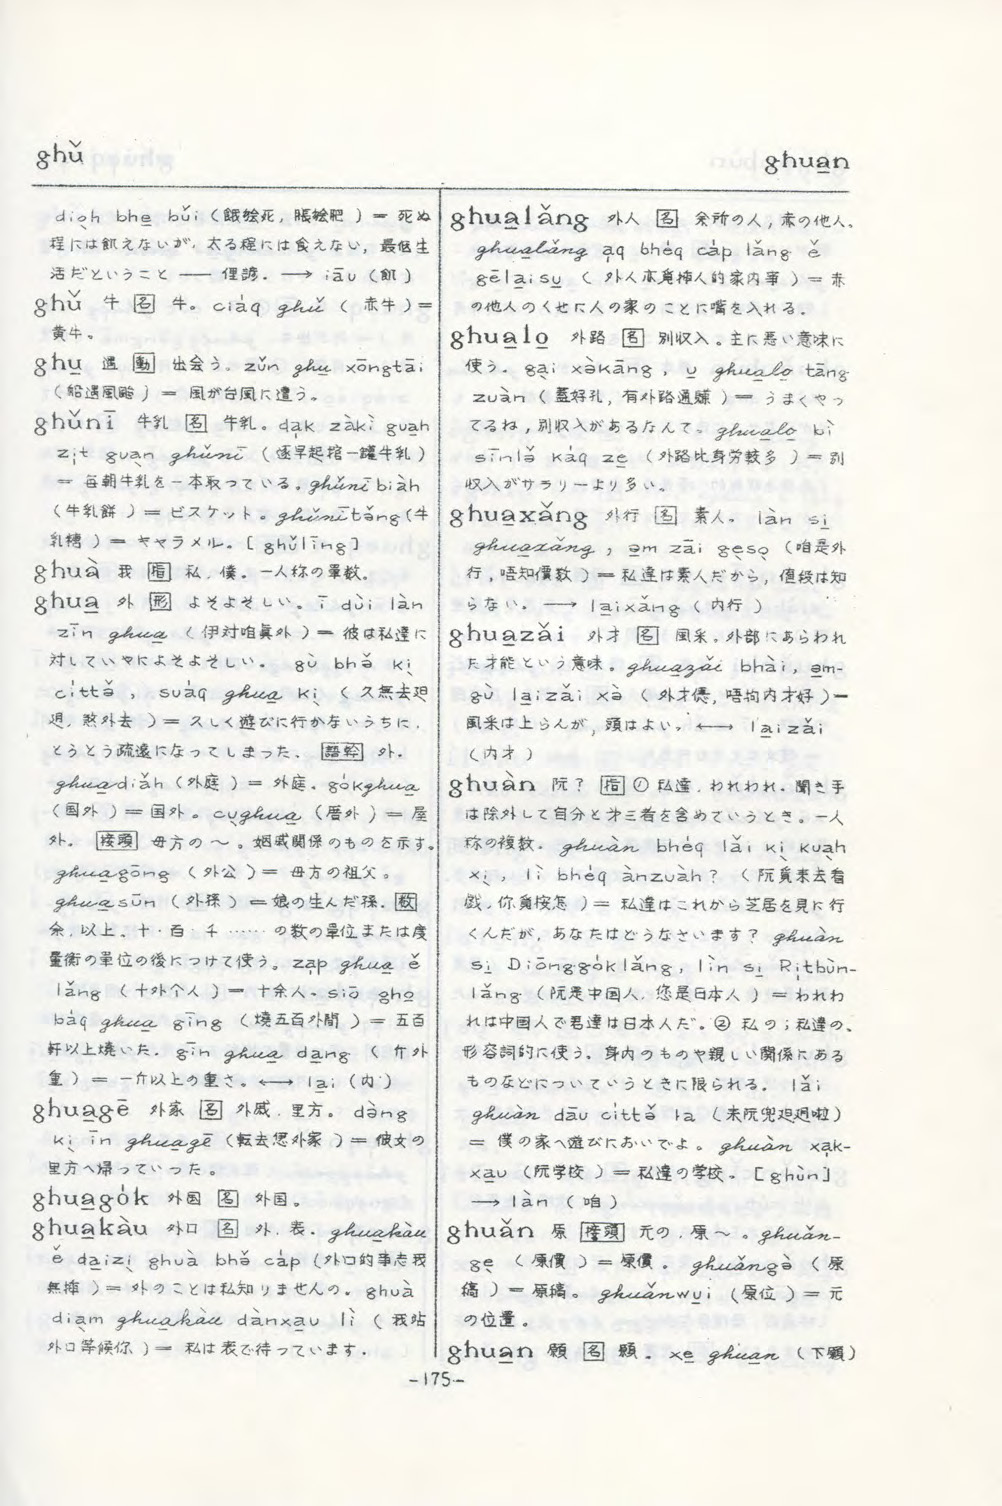 ghǔ
ghua̱n
dio̱h bhe̱ bǔi (餓𣍐死, 脹𣍐肥 ) = 死ぬ
程には飢えないが, 太る程には食えない, 最低生
活だということ —— 俚諺. ⟶ iāu (飢 )
ghǔ 牛 名 牛。ciáq ghǔ ( 赤牛 ) =
黄牛。
ghu̱ 遇 動 出会う。zǔn ghu̱ xōngtāi
(船遇風颱 ) = 風が台風に遭う。
ghǔnī 牛乳 名 牛乳。da̱k zàkì guah
zi̱t guan ghǔnī (逐早起捾一鑵牛乳 )
= 毎朝牛乳を一本取っている。ghǔnī biàh
(牛乳餅 ) = ビスケット。ghǔnītǒng (牛
乳糖 ) = キャラメル。[ ghǔlīng ]
ghuà 我 指 私. 僕. 一人称の單数.
ghua̱ 外 形 よそよそしい。ī dùi làn
zīn ghua̱ ( 伊対咱眞外 ) = 彼は私達に
対していやによそよそしい。 gù bhə̌ kì̱
cíttə̌ , suáq ghua̱ kì̱ ( 久無去𨑨
迌, 煞外去 ) = 久しく遊びに行かないうちに,
とうとう疏遠になってしまった. 語幹 外.
ghua̱diǎh (外庭 ) = 外庭. gókghua̱
(国外 ) = 国外。cù̱ghua̱ (厝外 ) = 屋
外. 接頭 母方の ～ 。姻戚関係のものを示す。
ghua̱gōng ( 外公 ) = 母方の祖父。
ghua̱sūn (外孫 ) = 娘の生んだ孫. 数
余, 以上, 十・百・千 …… の数の單位または度
量衡の單位の後につけて使う。za̱p ghua̱ ě
lǎng ( 十外个人 ) = 十余人. siō gho̱
báq ghua̱ gīng ( 燒五百外間 ) = 五百
軒以上燒いた. gīn ghua̱ da̱ng ( 斤外
重 ) = 一斤以上の重さ。⟷ la̱i (内 )
ghua̱gē 外家 名 外戚. 里方。dàng
kì̱ īn ghua̱gē (転去𪜶外家 ) = 彼女の
里方へ帰っていった。
ghua̱gók 外国 名 外国。
ghua̱kàu 外口 名 外. 表. ghua̱kàu
ě da̱izì̱ ghuà bhə̌ cáp (外口的事志我
無揷 ) = 外のことは私知りませんの. ghuà
diàm ghua̱kàu dànxa̱u lì ( 我站
外口等候你 ) = 私は表で待っています.
ghua̱lǎng 外人 名 余所の人, 赤の他人.
ghua̱lǎng a̱q bhéq cáp lǎng ě
gēla̱isu̱ ( 外人亦覓揷人的家内事 ) = 赤
の他人のくせに人の家のことに嘴を入れる.
ghua̱lo̱ 外路 名 別収入。主に悪い意味に
使う。ga̱i xə̀kāng , u̱ ghua̱lo̱ tāng
zuàn ( 蓋好孔, 有外路通賺 ) = うまくやっ
てるね, 別収入があるなんて。ghua̱lo̱ bì
sīnlə̌ káq ze̱ (外路比身労較多 ) = 別
収入がサラリーより多い.
ghua̱xǎng 外行 名 素人. làn si̱
ghua̱xǎng , a̱m zāi gè̱sò̱ (咱是外
行, 唔知價数 ) = 私達は素人だから, 値段は知
らない. ⟶ la̱ixǎng ( 内行 )
ghua̱zǎi 外才 名 風采. 外部にあらわれ
た才能という意味。ghua̱zǎi bhài, a̱m-
gù la̱izǎi xə̀ ( 外才僫, 唔拘内才好 ) =
風采は上らんが, 頭はよい。⟷ la̱izǎi
(内才 )
ghuàn 阮? 指 ① 私達, われわれ. 聞き手
は除外して自分と才三者を含めていうとき。一人
称の複数. ghuàn bhéq lǎi kì̱ kuàh
xì̱ , lì bhéq ànzuàh ? ( 阮覓来去看
戯, 你覓按怎 ) = 私達はこれから芝居を見に行
くんだが, あなたはどうなさいます? ghuàn
si̱ Diōnggóklǎng, lìn si̱ Ri̱tbùn-
lǎng (阮是中国人. 您是日本人 ) = われわ
れは中国人で君達は日本人だ。② 私の; 私達の,
形容詞的に使う. 身内のものや親しい関係にある
ものなどについていうときに限られる. lǎi
ghuàn dāu cíttə̌ la (来阮兜𨑨迌啦)
= 僕の家へ遊びにおいでよ。ghuàn xa̱k-
xa̱u (阮学校 ) = 私達の学校. [ ghùn ]
⟶ làn ( 咱 )
ghuǎn 原 接頭 元の . 原 ～ 。ghuǎn-
gè̱ ( 原價 ) = 原價. ghuǎngə̀ ( 原
稿 ) = 原稿。ghuǎnwu̱i (原位 ) = 元
の位置.
ghua̱n 願 名 願. xe̱ ghua̱n ( 下願)
-175-